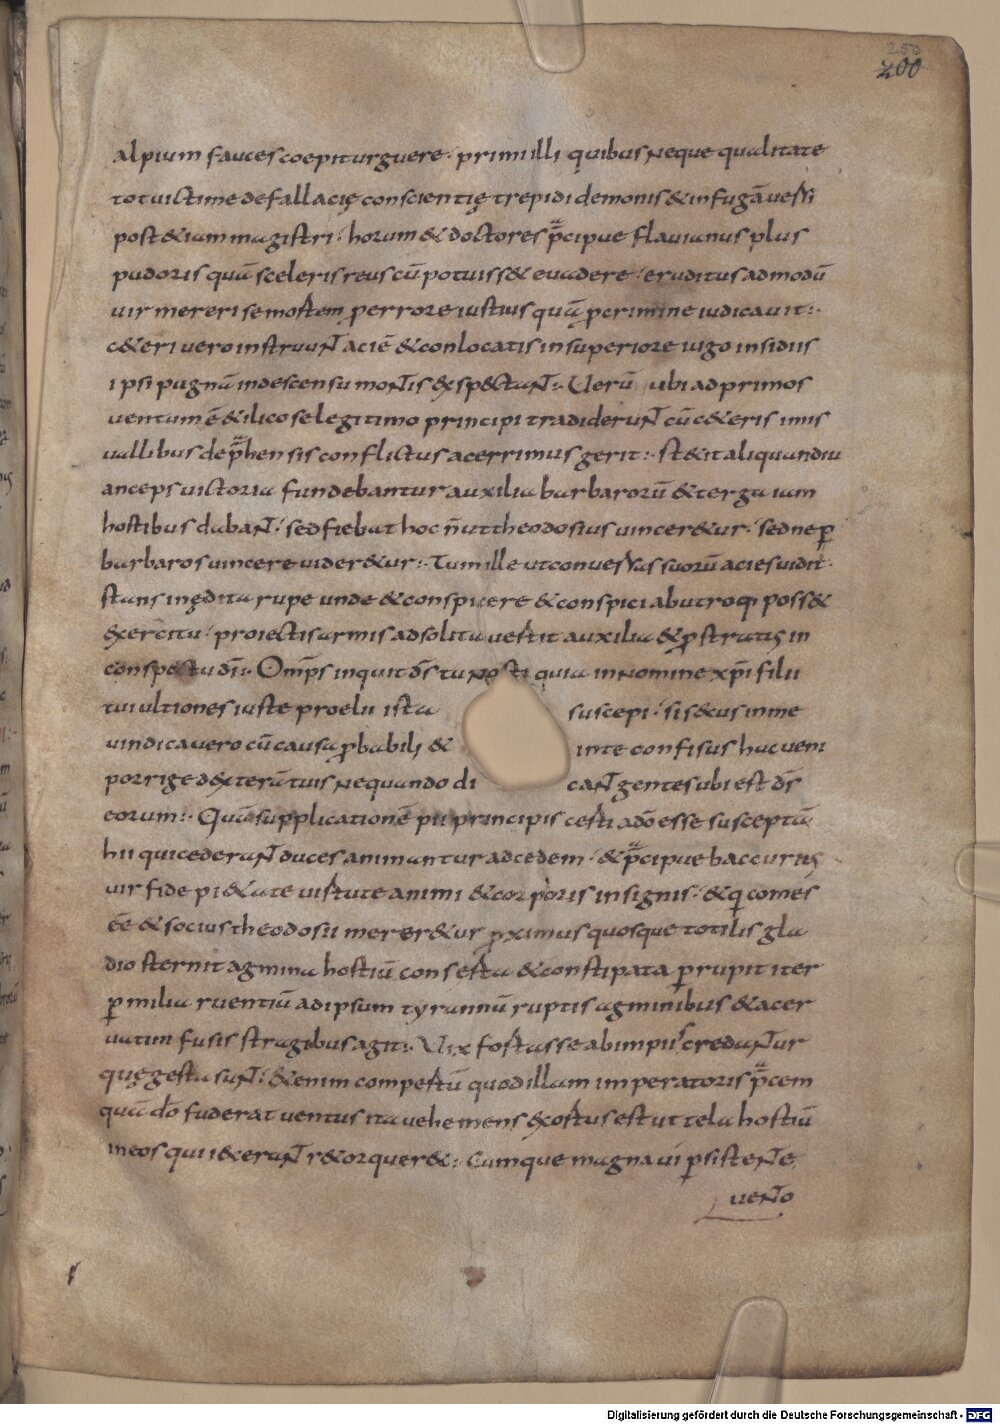 200
alpium fauces coepit urguere· primi illi quibus neque qualitate
tot uictime de fallacię conscientię trepidi demonis & in fugā uersi
post & iam magistri· horum & doctores p̄cipue flauianus plus
pudoris quā sceleris reus cū potuiss& euadere· eruditus admodū
uir mereri se mortem ꝑ errore iustius quā ꝑ crimine iudicauit:·
c&eri uero instruunt aciē & conlocatis in superiore iugo insidiis
ipsi pugnā in descensu montis exspectant:· Uerū ubi ad primos
uentum ē & ilico se legitimo principi tradiderunt cū c&eris imis
uallibus dep̄hensis conflictus acerrimus gerit:· st&it aliquandiu
anceps uictoria fundebantur auxilia barbarorū & terga iam
hostibus dabant· sed fiebat hoc n̄ ut theodosius uincer&ur· sed ne ꝑ
barbaros uincere uider&ur:· Tum ille ut conuersas suorū acies uidit·
stans in ędita rupe unde & conspicere & conspici ab utroq; poss&
exercitu· proiectis armis ad solita uertit auxilia & ꝓstratus in
conspectu dī:· Omps inquit ds tu nosti quia in nomine xpi filii
tui ultiones iuste proelii ista suscepi· si secus in me
uindica uero cū causa ꝓbabili & in te confisus huc ueni
porrige dexterā tuis ne quando di cant gentes ubi est ds
eorum:· Quā supplicationē pii principis certi a do esse susceptā
hii qui cederant duces animantur ad cedem· & p̄cipue baccurius
uir fide pi&ate uirtute animi & corporis insignis· & qi comes
ēe & socius theodosii merer&ur ꝓximus quosque totilis gla
dio sternit agmina hostiū conserta & constipata ꝑrupit iter
ꝑ milia ruentiū ad ipsum tyrannū ruptis agminibus & acer
uatim fusis stragibus agit:· Uix fortasse ab impiis credantur
quę gesta sunt· &enim compertū quod illam imperatoris p̄cem
quā do fuderat uentus ita uehemens exortus est ut tela hostiū
in eos qui i&erant r&orquer&:· Cumque magna ui ꝑsistente
uento
Digitalisierung gefördert durch die Deutsche Forschungsgemeinschaft - DFG